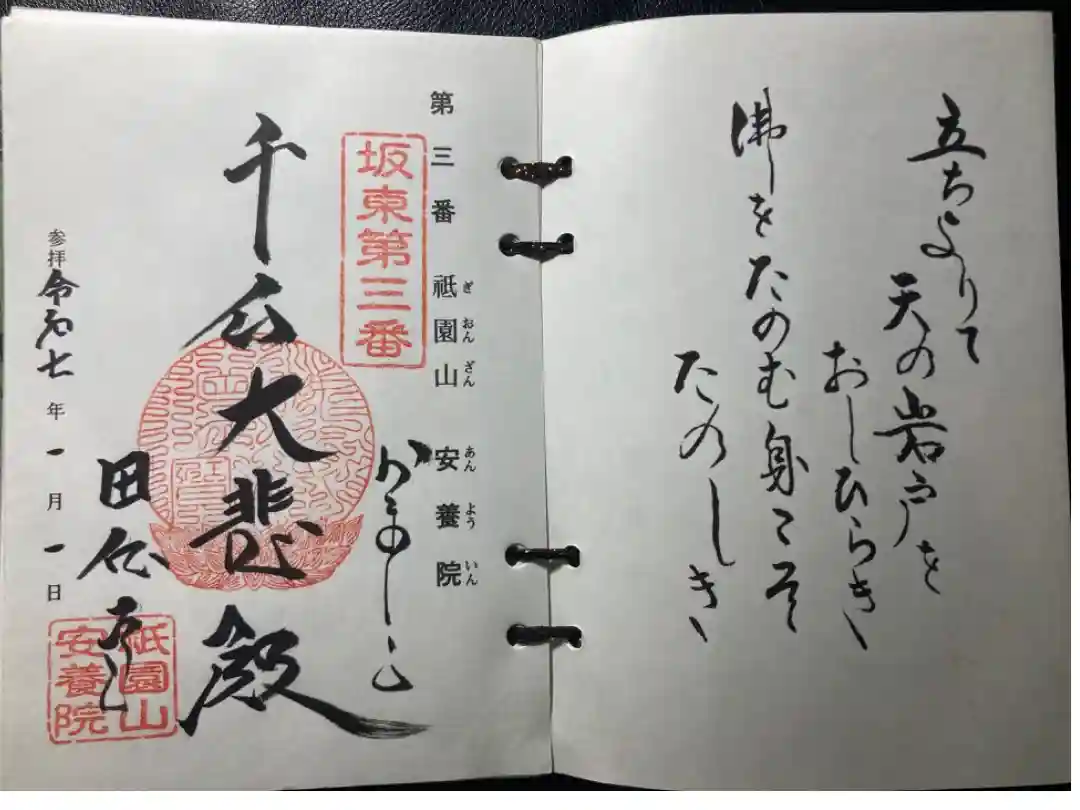 立ちよりて
天の岩戸を
おしひらき、
佛をたのむ身こそ
たのしき、
第三番 祇園山 安養院
ぎおんざん あんよういん
坂東第三番
千手大悲殿
田代
祇園山
安養院
参拝令和七年一月一日